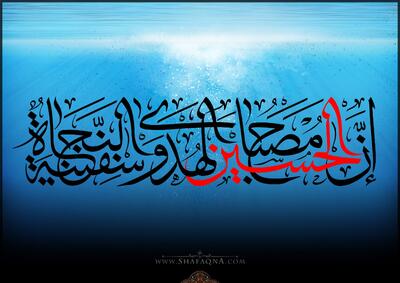 إنّ الحسين مصباح الهدى وسفينة النّجاة
www.Shafaqna.com